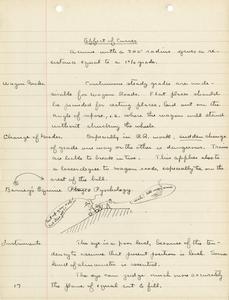 Effect of Curves
A curve with a 700' radius gives a re-
sistance equal to a 1% grade.
Wagon Roads
Continuous steady grades are unde-
sirable for wagon Roads. Flat places should
be provided for resting places, laid out on the
angle of repose, i.e. where the wagon will stand
without chocking the wheels.
Change of Grades.
Especially in R.R. work, sudden change
of grade one way or the other is dangerous. Trains
are liable to break in two. This applies also to
a lesser extent to wagon roads, especially on the
crest of the hill.
Barney's Equine Psychology
Instruments
The eye is a poor level, because of the ten-
dency to assume that present position is level. Some
kind of a level is essential.
The eye can judge much more accurately
the plane of equal cut & fill.
17